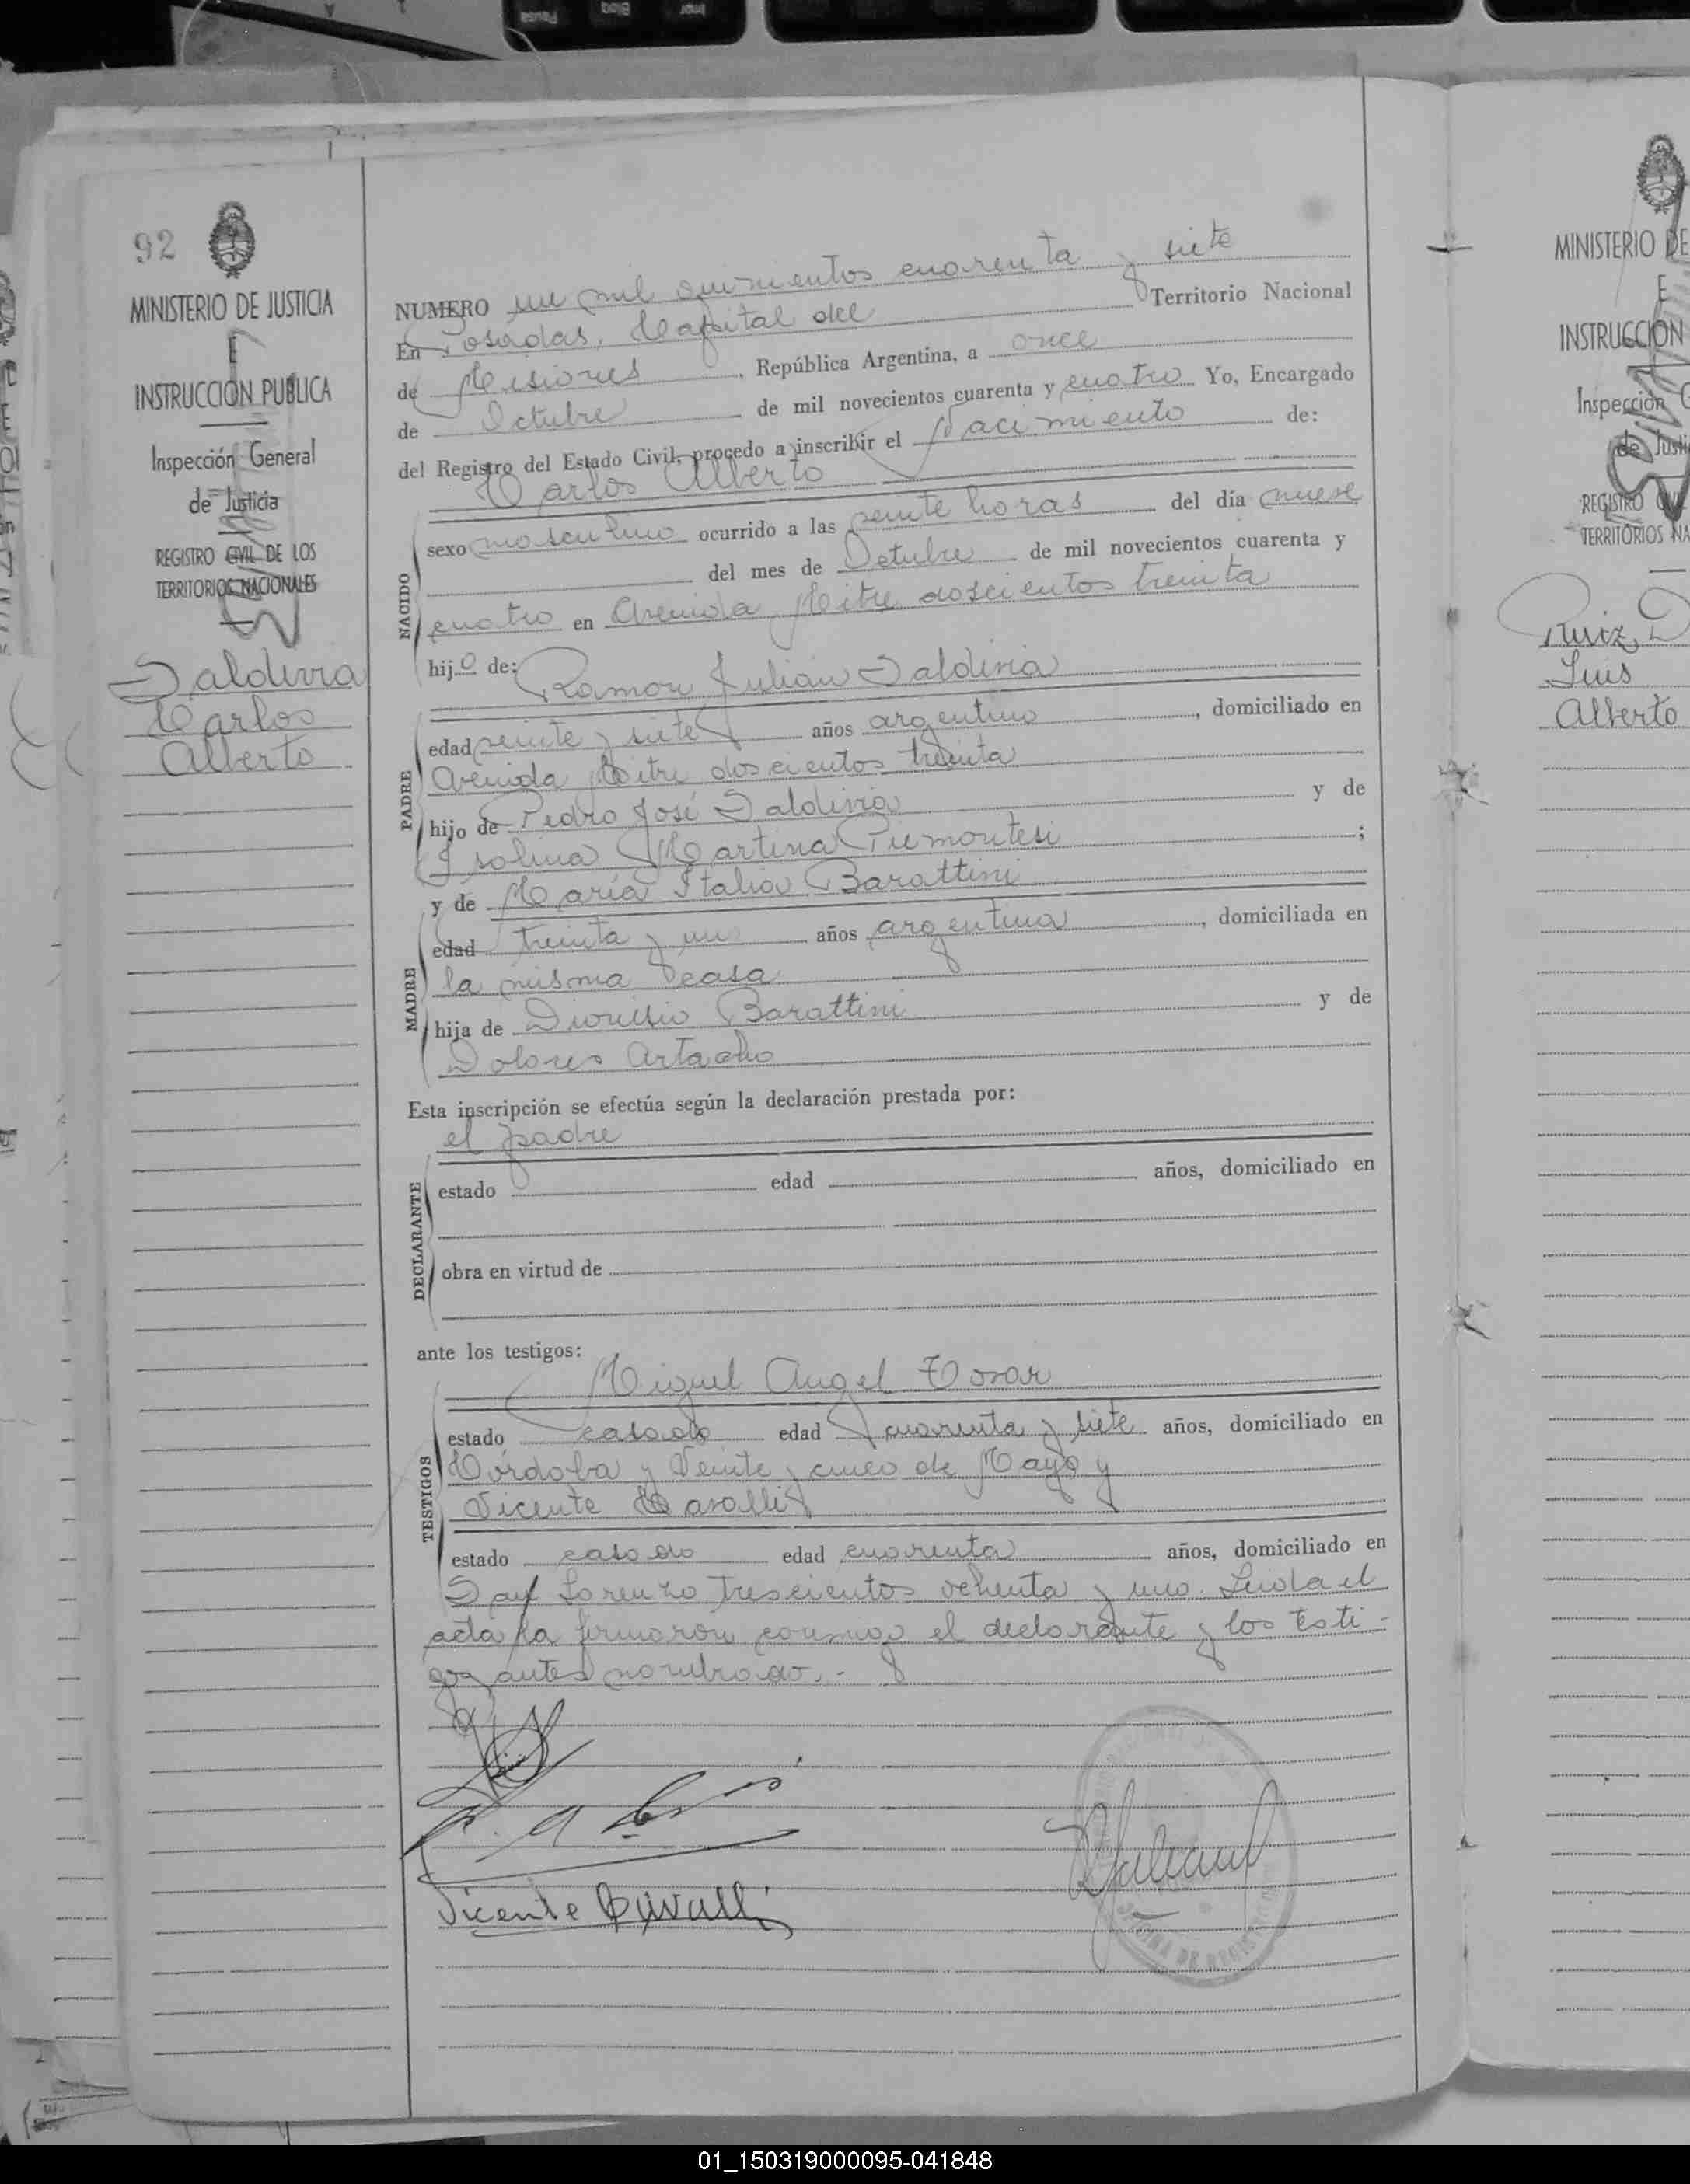 92
MINISTERIO DE JUSTICIA
E
INSTRUCCION PUBLICA
Inspección General
de Justicia
REGISTRO CIVIL DE LOS
TERRITORIOS NACIONALES
Saldivia
Carlos
Alberto
NUMERO un mil quinientos cuarenta y siete
En Posadas, Capital del Territorio Nacional
de Misiones, República Argentina, a once
de Octubre de mil novecientos cuarenta y cuatro Yo, Encargado
del Registro del Estado Civil, procedo a inscribir el Nacimiento de:
Carlos Alberto
NACIDO
sexo masculino ocurrido a las veinte horas del día nueve
del mes de Octubre de mil novecientos cuarenta y
cuatro en Avenida Mitre doscientos treinta
hijo de: Ramon Julian Saldivia
PADRE
edad veinte y siete años argentino, domiciliado en
Avenida Mitre doscientos treinta
hijo de Pedro José Saldivia y de
Isolina Martina Piemontesi;
y de María Italia Barattini
MADRE
edad treinta y un años argentina, domiciliada en
la misma casa
hija de Dionisio Barattini y de
Dolores Artacho
Esta inscripción se efectúa según la declaración prestada por:
el padre
DECLARANTE
estado edad años, domiciliado en
obra en virtud de
ante los testigos:
Miguel Angel
TESTIGOS
estado casado edad cuarenta y siete años, domiciliado en
Córdoba y Veinte y cinco de Mayo y
Vicente Cavalli
estado casado edad cuarenta años, domiciliado en
San Lorenzo trescientos ochenta y uno. Leida el
acta la firmaron conmigo el declarante y los testi-
gos antes nombrado.-
Vicente Cavalli
MINISTERIO DE
E
INSTRUCCION
Inspección G
de Justi
REGISTRO CIVIL
TERRITORIOS NA
Ruiz
Luis
Alberto
01_150319000095-041848